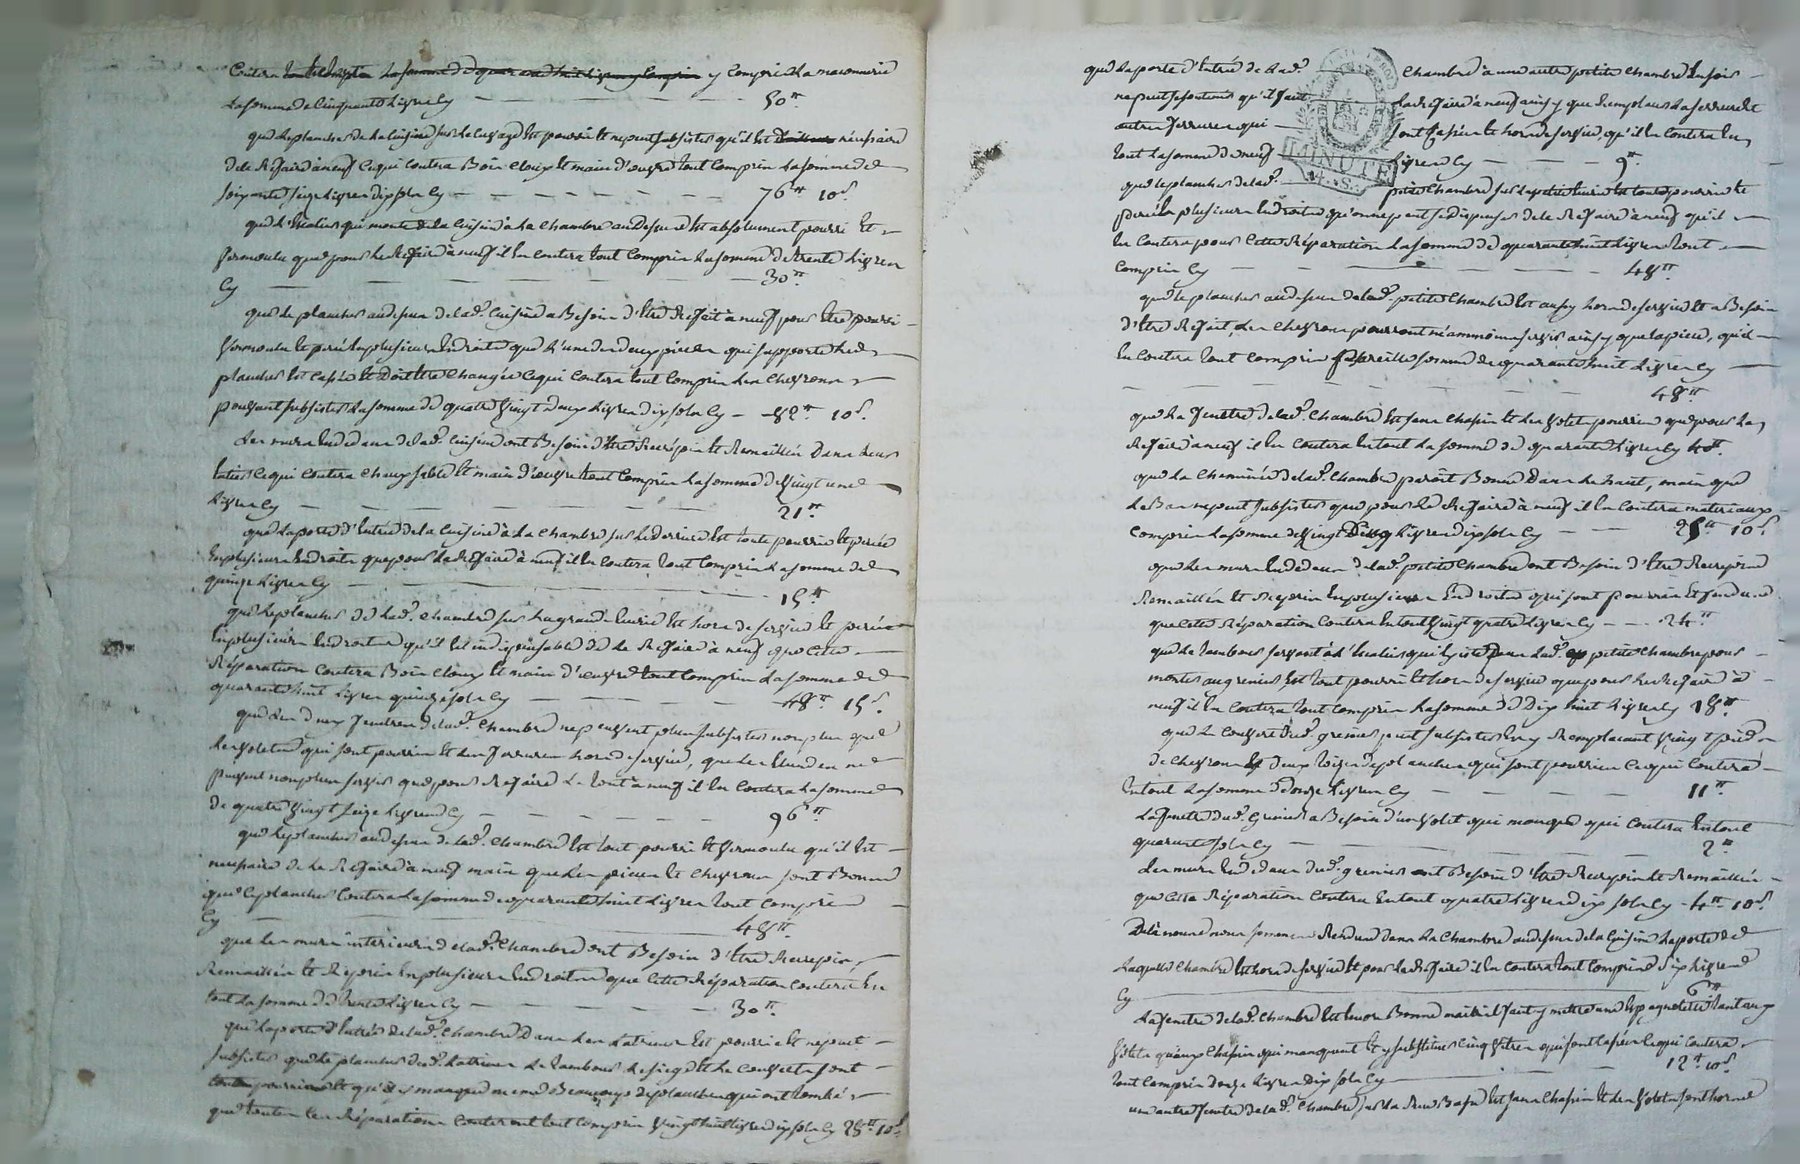 Contera tout Compris La somme de quarante huit Livres y Compris y Compris La massonnerie
La somme de Cinquante Livres Cy — 50ᵗᵗ
que Le plancher de La Cuisine sur La Cuvage Est pourri Et ne peut subsister qu'il Est nécessaire
de le Refaire à neuf Ce qui Contera Bois Cloux Et main d'euvre tout Compris La somme de
soixante seize Livres dix sols Cy — 76ᵗᵗ 10ˢ
que L'Escalier qui monte de La Cuisine à La Chambre au dessus Est absolument pourri Et
vermoulu que pour Le Refaire à neuf il En Contera tout Compris La somme de trente Livres
Cy — 30ᵗᵗ
que Le plancher au dessus de lad. Cuisine a Besoin d'Etre Refait à neuf pour Etre pourri
vermoulu Et percé En plusieurs Endroits que L'une des deux pieces qui supporte Led.
plancher Est Cassée Et Doit Etre Changée Ce qui Contera tout Compris Les Chevrons
pouvant subsister La somme de quatre vingt deux Livres dix sols Cy — 82ᵗᵗ 10ˢ
Les murs En dedans de lad. Cuisine ont Besoin d'Etre Recrepis Et Remaillés Dans Leur
Entier Ce qui Contera Chaux sable Et main d'euvre tout Compris La somme de vingt une
Livres Cy — 21ᵗᵗ
que La porte d'Entrée de la Cuisine à La Chambre sur Le derriere Est toute pourrie Et percée
En plusieurs Endroits que pour La Refaire à neuf il En Contera tout Compris La somme de
quinze Livres Cy — 15ᵗᵗ
que Le plancher de Lad. Chambre sur La grande Ecurie Est hors de service Et percé
En plusieurs Endroits qu'il Est indispensable de Le Refaire à neuf que Cette
Réparation Contera Bois Cloux Et main d'euvre tout Compris La somme de
quarante huit Livres quinze sols Cy — 48ᵗᵗ 15ˢ
que Les deux fenetres de lad. Chambre ne peuvent plus subsister non plus que
Les volets qui sont pourris Et Les ferrures hors de service, que Les ne
peuvent non plus servir que pour Refaire Le tout à neuf il En Contera La somme
de quatre vingt seize Livres Cy — 96ᵗᵗ
que Le plancher au dessus de lad. Chambre Est tout pourri Et vermoulu qu'il Est
necessaire de Le Refaire à neuf mais que Les pieces Et Chevrons sont Bons
que Ce plancher Contera La somme de quarante huit Livres tout Compris
Cy — 48ᵗᵗ
que Les murs interieurs de lad. Chambre ont Besoin d'Etre Recrepis,
Remaillés Et Repris En plusieurs Endroits que Cette Réparation Contera En
tout La somme de trente Livres Cy — 30ᵗᵗ
que La porte d'Entrée de lad. Chambre Dans Les Latrines Est pourrie Et ne peut
subsister que Le plancher desd. Latrines Le tambour Le siege Et Le Couvert sont
tous pourris Et qu'il y manque meme Beaucoup de planches qui ont tombé
que toutes Ces Réparations Conteront tout Compris vingt huit Livres dix sols Cy 28ᵗᵗ 10ˢ
que La porte d'Entrée de Lad. Chambre à une autre petite Chambre Ensuite
ne peut se soutenir qu'il faut La Refaire à neuf ainsy que Remplacer La serrure Et
autres ferrures qui sont Cassées Et hors de service qu'il En Contera En
tout La somme de neuf Livres Cy — 9ᵗᵗ
MINUTE
4. S.
que Le plancher de lad. petite Chambre sur La petite Ecurie Est tout pourri Et
percé En plusieurs Endroits qu'on ne peut se dispenser de le Refaire à neuf qu'il
En Contera pour Cette Réparation La somme de quarante huit Livres tout
Compris Cy — 48ᵗᵗ
que Le plancher au dessus de lad. petite Chambre Est aussy hors de service Et a Besoin
d'Etre Refait, Les Chevrons pourront néammoins servir ainsy que La piece, qu'il
En Contera tout Compris pareille somme de quarante huit Livres Cy
— 48ᵗᵗ
que La fenetre de lad. Chambre Est sans Chassis Et Les volets pourris que pour La
Refaire à neuf il En Contera En tout La somme de quarante Livres Cy 40ᵗᵗ
que La Cheminée de lad. Chambre paroit Bonne Dans Le haut, mais que
Le Bas ne peut subsister que pour Le Refaire à neuf il En Contera materiaux
Compris La somme de vingt Cinq Livres dix sols Cy — 25ᵗᵗ 10ˢ
que Les murs En dedans de lad. petite Chambre ont Besoin d'Etre Recrepis
Remaillés Et Repris En plusieurs Endroits qui sont pourris Et fendus
que Cette Réparation Contera En tout vingt quatre Livres Cy — 24ᵗᵗ
que Le tambour servant à L'Escalier qui Existe Dans Lad. petite Chambre pour
monter au grenier Est tout pourri Et hors de service que pour Le Refaire à
neuf il En Contera tout Compris La somme de Dix huit Livres Cy 18ᵗᵗ
que Le Couvert dud. grenier peut subsister En y Remplacant vingt pieds
de Chevrons Et deux toises de planches qui sont pourries Ce qui Contera
En tout La somme d'onze Livres Cy — 11ᵗᵗ
La fenetre dud. Grenier a Besoin d'un volet qui manque qui Contera En tout
quarante sols Cy — 2ᵗᵗ
Les murs En dedans dud. grenier ont Besoin d'Etre Recrepis Et Remaillés
que Cette Réparation Contera En tout quatre Livres dix sols Cy — 4ᵗᵗ 10ˢ
Delà nous nous sommes Rendus dans La Chambre au dessus de la Cuisine La porte de
Laquelle Chambre Est hors de service Et pour La Refaire il En Contera tout Compris six Livres
Cy — 6ᵗᵗ
La fenetre de lad. Chambre Est Encore Bonne mais il faut y mettre une Espagnolette tant aux
volets qu'aux Chassis qui manquent Et y substituer Cinq vitres qui sont Cassées Ce qui Contera
tout Compris Douze Livres Dix sols Cy — 12ᵗᵗ 10ˢ
une autre fenetre de lad. Chambre sur La Rue Basse Est sans Chassis Et Les volets sont hors de